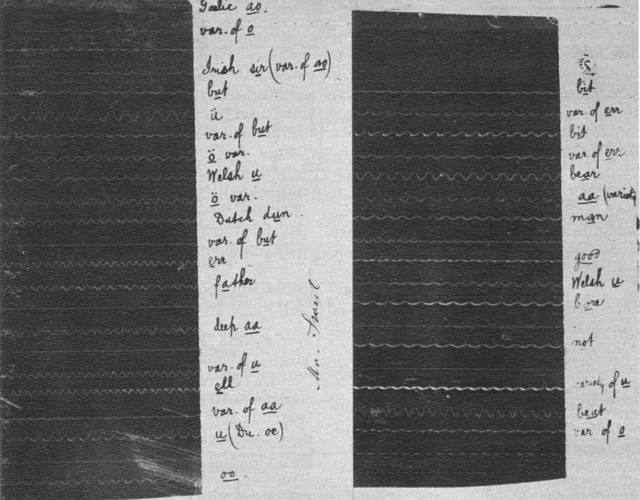 Gaelic ao.
var. of o
Irish sir (var. of ao)
but
ü
var. of but
ö var.
Welsh u
ö var.
Dutch dun.
var. of but
err
father
deep aa
var. of u
ell
var. of aa
u (Du. oe)
oo.
Mr. Sweet
bit
var. of err
bit
var. of err
bear
aa (variety
man
good
Welsh u
bore
not
variety of u
beat
var of o